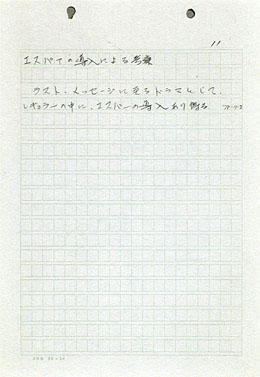 11
エスパーの導入による考案
ラスト・メッセージに至るドラマとして、
レギュラーの中に、エスパーの導入あり得る